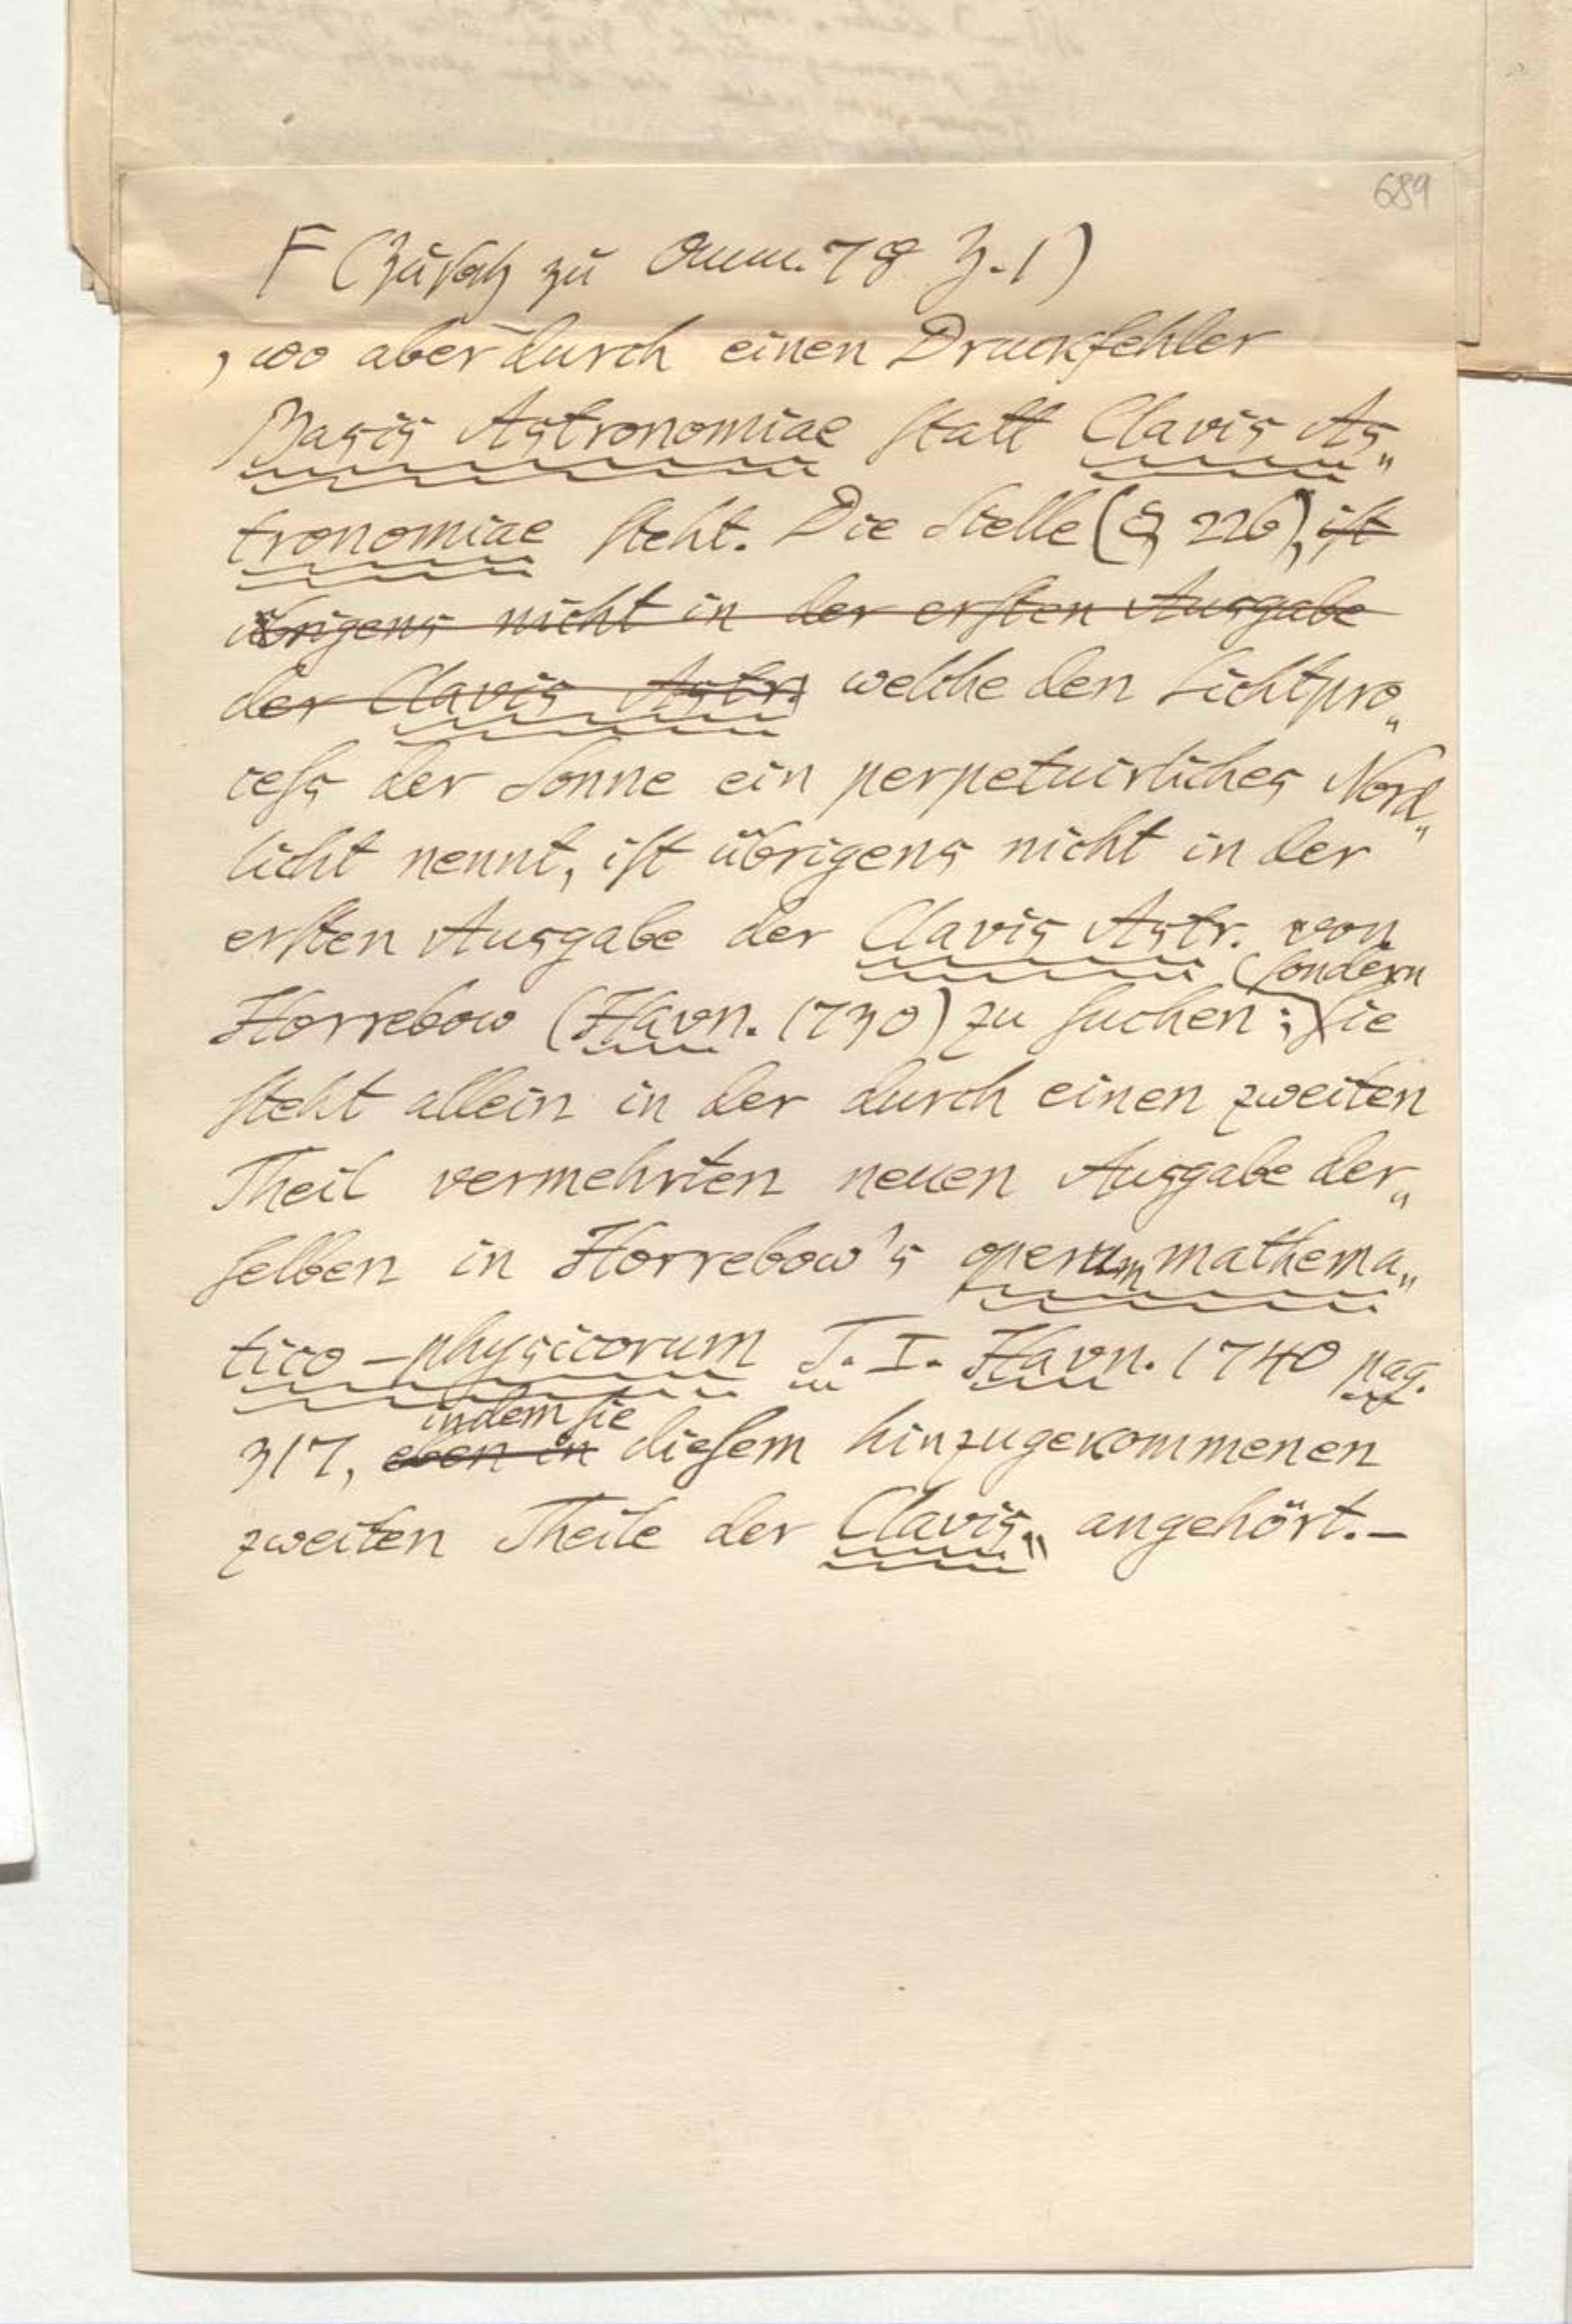 689
F (Zusatz zu Anm. 78 Z. 1)
, wo aber durch einen Druckfehler
Basis Astronomiae statt Clavis As„
tronomiae steht. Die Stelle (§ 226), ist
übrigens nicht in der ersten Ausgabe
der Clavis Astr. welche den Lichtpro„
cess der Sonne ein perpetuirliches Nord„
licht nennt, ist übrigens nicht in der
ersten Ausgabe der Clavis Astr. von
sondern
Horrebow (Havn. 1730) zu suchen; sie
steht allein in der durch einen zweiten
Theil vermehrten neuen Ausgabe der„
selben in Horrebow's operum mathema„
tico-physicorum T. I. Havn. 1740 pag.
indem sie
317, eben in diesem hinzugekommenen
zweiten Theile der Clavis„ angehört.–